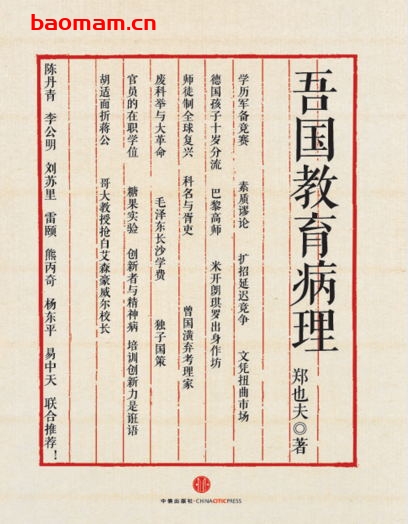 报满屏
baomam.cn
吾国教育病理
郑也夫◎著
学历军备竞赛 素质谬论 扩招延迟竞争 文凭扭曲市场
德国孩子十岁分流 巴黎高师 米开朗琪罗出身作坊
师徒制全球复兴 科名与胥吏 曾国潢弃考理家
废科举与大革命 毛泽东长沙学费 独子国策
官员的在职学位 糖果实验 创新者与精神病 培训创新力是诳语
胡适面折蒋公 哥大教授抢白艾森豪威尔校长
陈丹青 李公明 刘苏里 雷颐 熊丙奇 杨东平 易中天 联合推荐!
中信出版社·CHINACITICPRESS